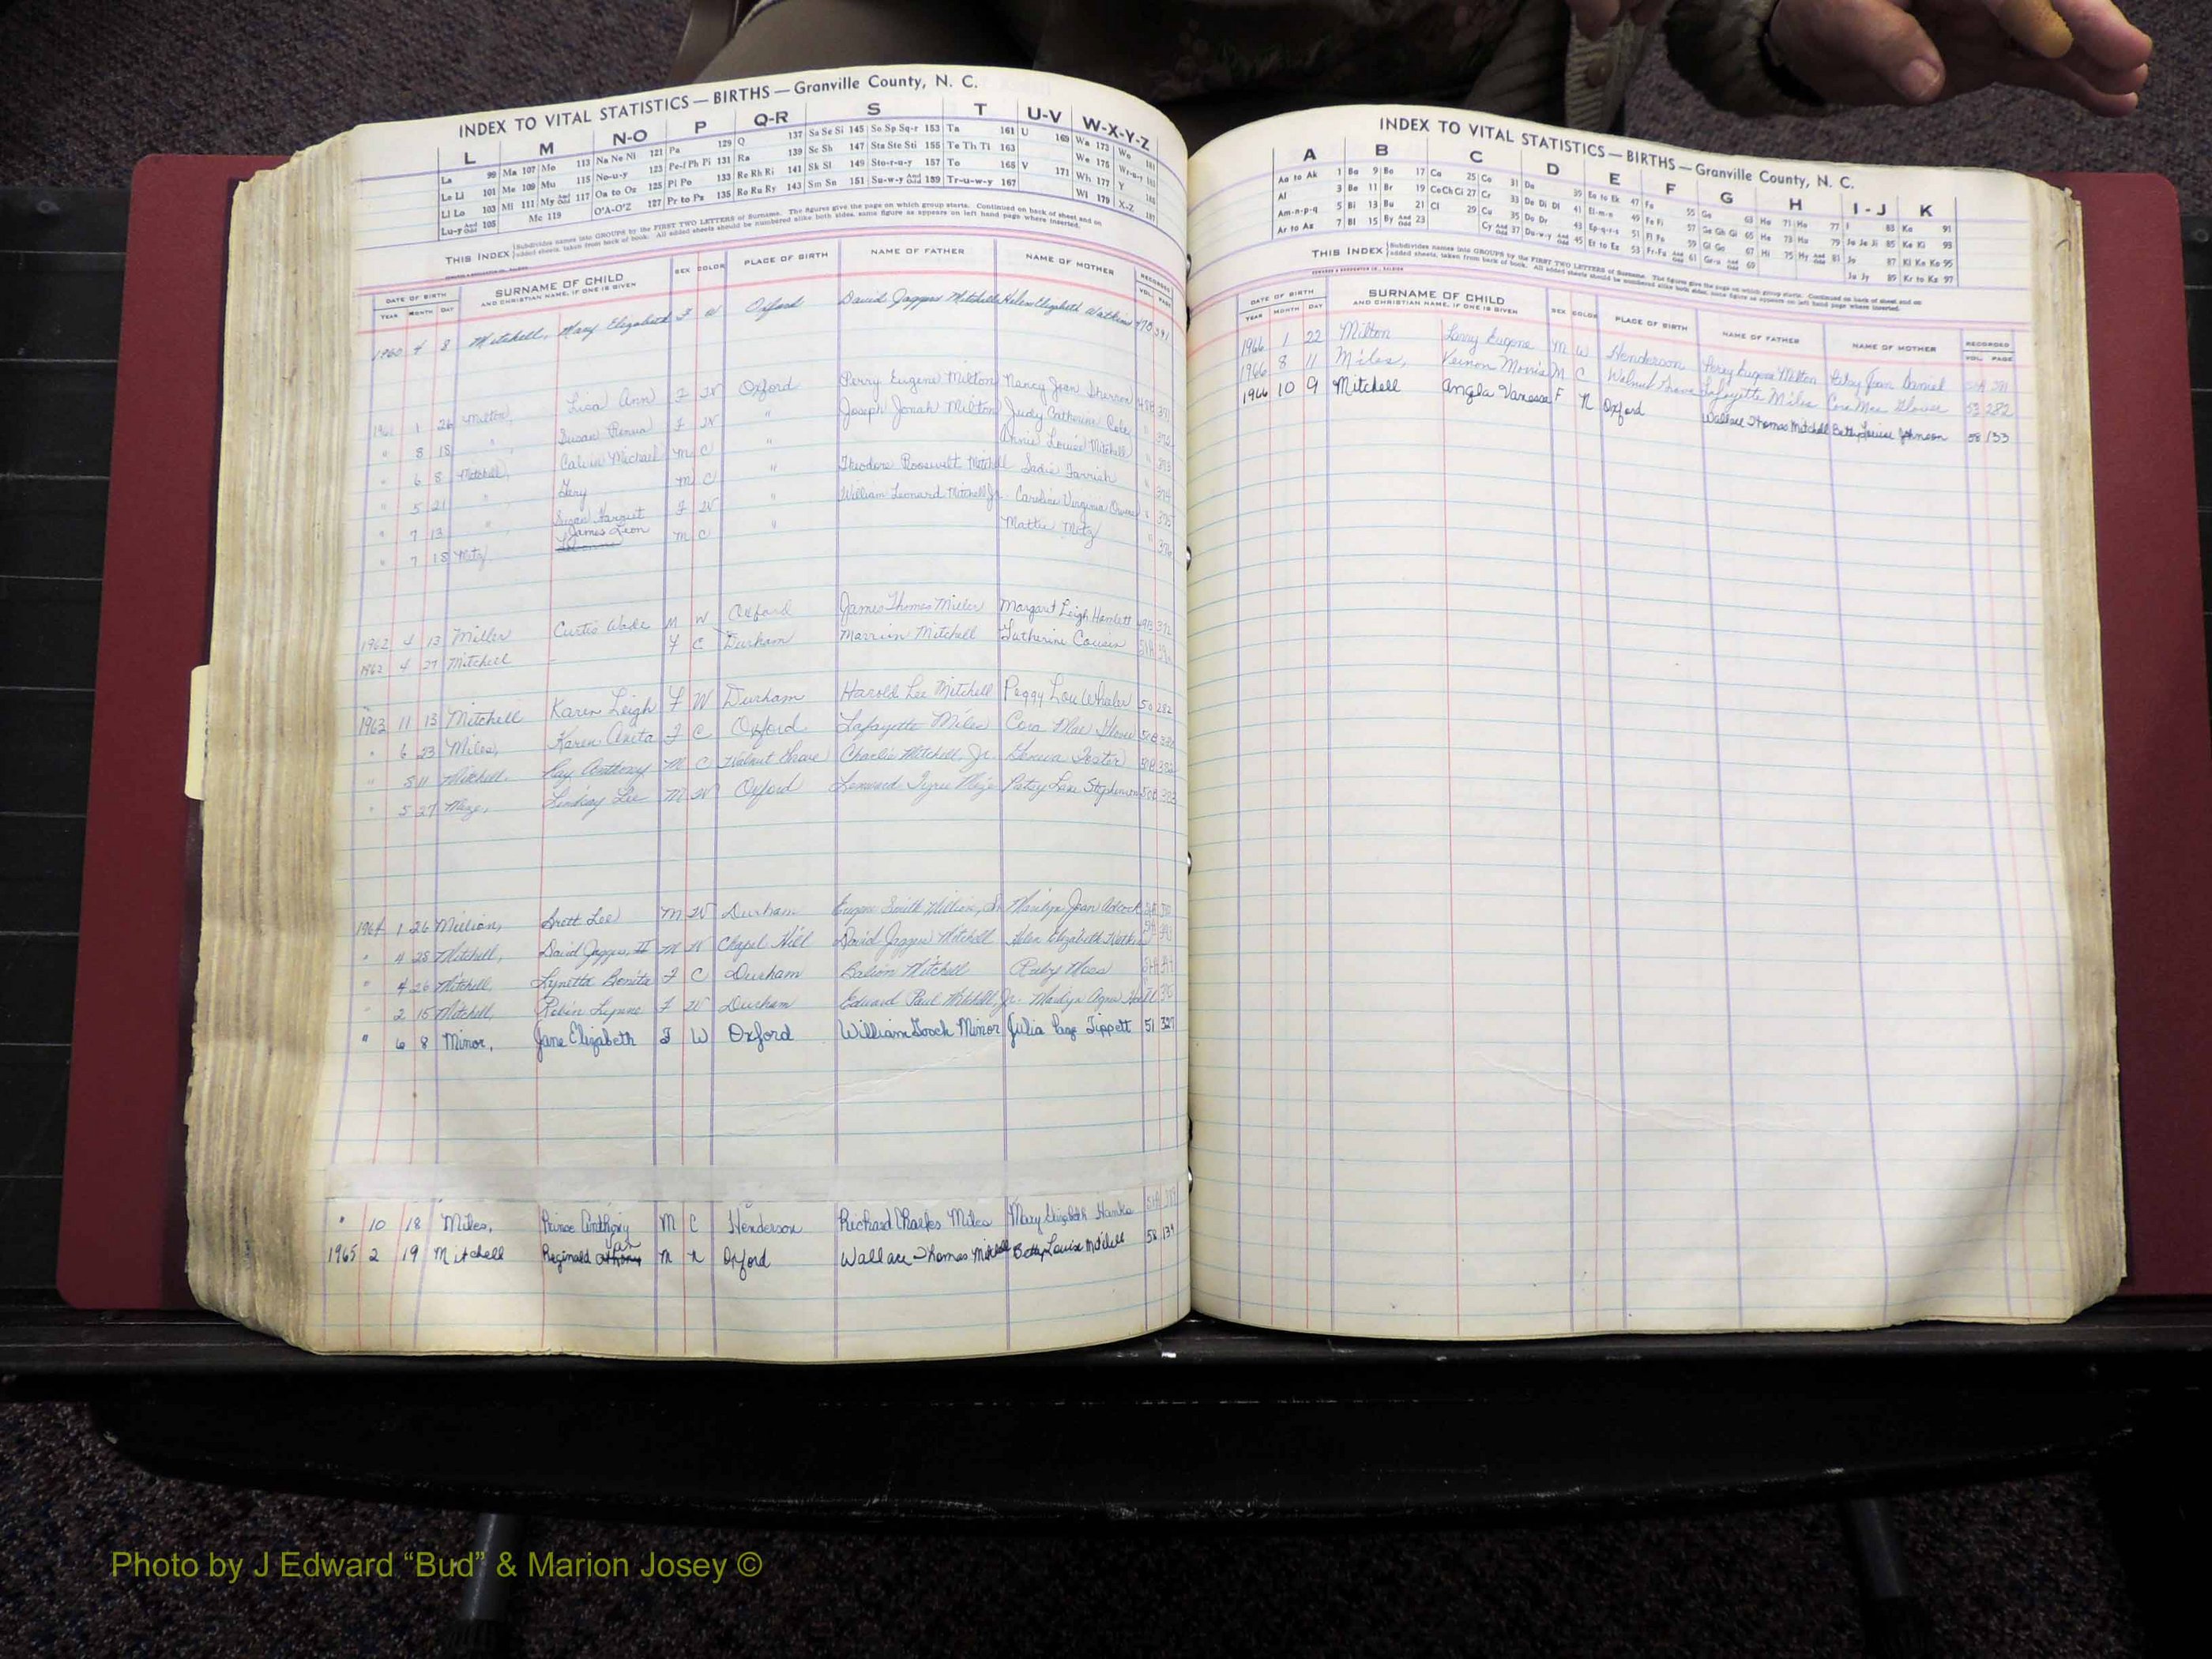 INDEX TO VITAL STATISTICS — BIRTHS — Granville County, N. C.
L M N-O P Q-R S T U-V W-X-Y-Z
La 99 Ma 107 Mo 113 Na Ne Ni 121 Pa 129 Q 137 Sa Se Si 145 So Sp Sq-r 153 Ta 161 U 169 Wa 173 Wo 181
Le Li 101 Me 109 Mu 115 No-u-y 123 Pe-f Ph Pi 131 Ra 139 Sc Sh 147 Sta Ste Sti 155 Te Th Ti 163 We 175 Wr-u-y 183
Ll Lo 103 Mi 111 My And Odd 117 Oa to Oz 125 Pl Po 133 Re Rh Ri 141 Sk Sl 149 Sto-r-u-y 157 To 165 V 171 Wh 177 Y 185
Lu-y And Odd 105 Mc 119 O'A-O'Z 127 Pr to Ps 135 Ro Ru Ry 143 Sm Sn 151 Su-w-y And Odd 159 Tr-u-w-y 167 Wi 179 X-Z 187
THIS INDEX Subdivides names into GROUPS by the FIRST TWO LETTERS of Surname. The figures give the page on which group starts. Continued on back of sheet and on
added sheets, taken from back of book. All added sheets should be numbered alike both sides, same figure as appears on left hand page where inserted.
DATE OF BIRTH SURNAME OF CHILD SEX COLOR PLACE OF BIRTH NAME OF FATHER NAME OF MOTHER RECORDED
YEAR MONTH DAY AND CHRISTIAN NAME, IF ONE IS GIVEN VOL. PAGE
1960 4 8 Mitchell, Mary Elizabeth F W Oxford David Jaggers Mitchell Helen Elizabeth Watkins
1961 1 26 Milton, Lisa Ann F W Oxford Perry Eugene Milton Nancy Jean Sherron 371
" 8 18 " Susan Renua F W " Joseph Jonah Milton Judy Catherine Cole " 372
" 6 8 Mitchell, Calvin Michael M C " Annie Louise Mitchell " 373
" 5 21 " Gary M C " Theodore Roosevelt Mitchell Sadie Farrish " 374
" 7 13 " Susan Harriet F W William Leonard Mitchell Jr. Caroline Virginia " 375
" 7 18 Metz James Leon M C " Mattie Metz " 376
1962 4 13 Miller Curtis Wade M W Oxford James Thomas Miller Margaret Leigh Hamlett
1962 4 27 Mitchell - F C Durham Marvin Mitchell Catherine Cousin
1963 11 13 Mitchell Karen Leigh F W Durham Harold Lee Mitchell Peggy Lou Wheeler 50 282
" 6 23 Miles, Karen Anita F C Oxford Lafayette Miles Cora Mae Glover
" 5 11 Mitchell, Ray Anthony M C Walnut Grove Charlie Mitchell, Jr. Geneva Foster
" 5 27 Mize, Lindsay Lee M W Oxford Leonard Tyree Mize Patsy Lane Stephenson
1964 1 26 Million, Brett Lee M W Durham Eugene Smith Million, Sr. Marilyn Jean Adcock
" 4 28 Mitchell, David Jaggers, II M W Chapel Hill David Jaggers Mitchell Helen Elizabeth Watkins
" 4 26 Mitchell, Lynette Bonita F C Durham Mitchell Ruby Moss
" 2 15 Mitchell, Robin Lynne F W Durham Edward Paul Mitchell, Jr. Marilyn Agnes
" 6 8 Minor, Jane Elizabeth F W Oxford William Gooch Minor Julia Page Tippett 51 327
" 10 18 Miles, Prince Anthony M C Henderson Richard Charles Miles Mary Elizabeth Hanks
1965 2 19 Mitchell Reginald M N Oxford Wallace Thomas Mitchell Betty Louise Mitchell 58 134
INDEX TO VITAL STATISTICS — BIRTHS — Granville County, N. C.
A B C D E F G H I - J K
Aa to Ak 1 Ba 9 Bo 17 Ca 25 Co 31 Da 39 Ea to Ek 47 Fa 55 Ga 63 Ha 71 Ho 77 I 83 Ka 91
Al 3 Be 11 Br 19 Ce Ch Ci 27 Cr 33 De Di Dl 41 El-m-n 49 Fe Fi 57 Ge Gh Gi 65 He 73 Hu 79 Ja Je Ji 85 Ke Ki 93
Am-n-p-q 5 Bi 13 Bu 21 Cl 29 Cu 35 Do Dr 43 Ep-q-r-s 51 Fl Fo 59 Gl Go 67 Hi 75 Hy And Odd 81 Jo 87 Kl Kn Ko 95
Ar to Az 7 Bl 15 By And Odd 23 Cy And Odd 37 Du-w-y And Odd 45 Et to Ez 53 Fr-Fu And Odd 61 Gr-u And Odd 69 Ju Jy 89 Kr to Kz 97
THIS INDEX Subdivides names into GROUPS by the FIRST TWO LETTERS of Surname. The figures give the page on which group starts. Continued on back of sheet and on
added sheets, taken from back of book. All added sheets should be numbered alike both sides, same figure as appears on left hand page where inserted.
DATE OF BIRTH SURNAME OF CHILD SEX COLOR PLACE OF BIRTH NAME OF FATHER NAME OF MOTHER RECORDED
YEAR MONTH DAY AND CHRISTIAN NAME, IF ONE IS GIVEN VOL. PAGE
1966 1 22 Milton Larry Eugene M W Henderson Perry Eugene Milton Jean Daniel
1966 8 11 Miles, Vernon Morris M C Walnut Grove Lafayette Miles Cora Mae Glover 53 282
1966 10 9 Mitchell Angla Vanessa F N Oxford Wallace Thomas Mitchell Betty Louise Johnson 58 133
Photo by J Edward “Bud” & Marion Josey ©